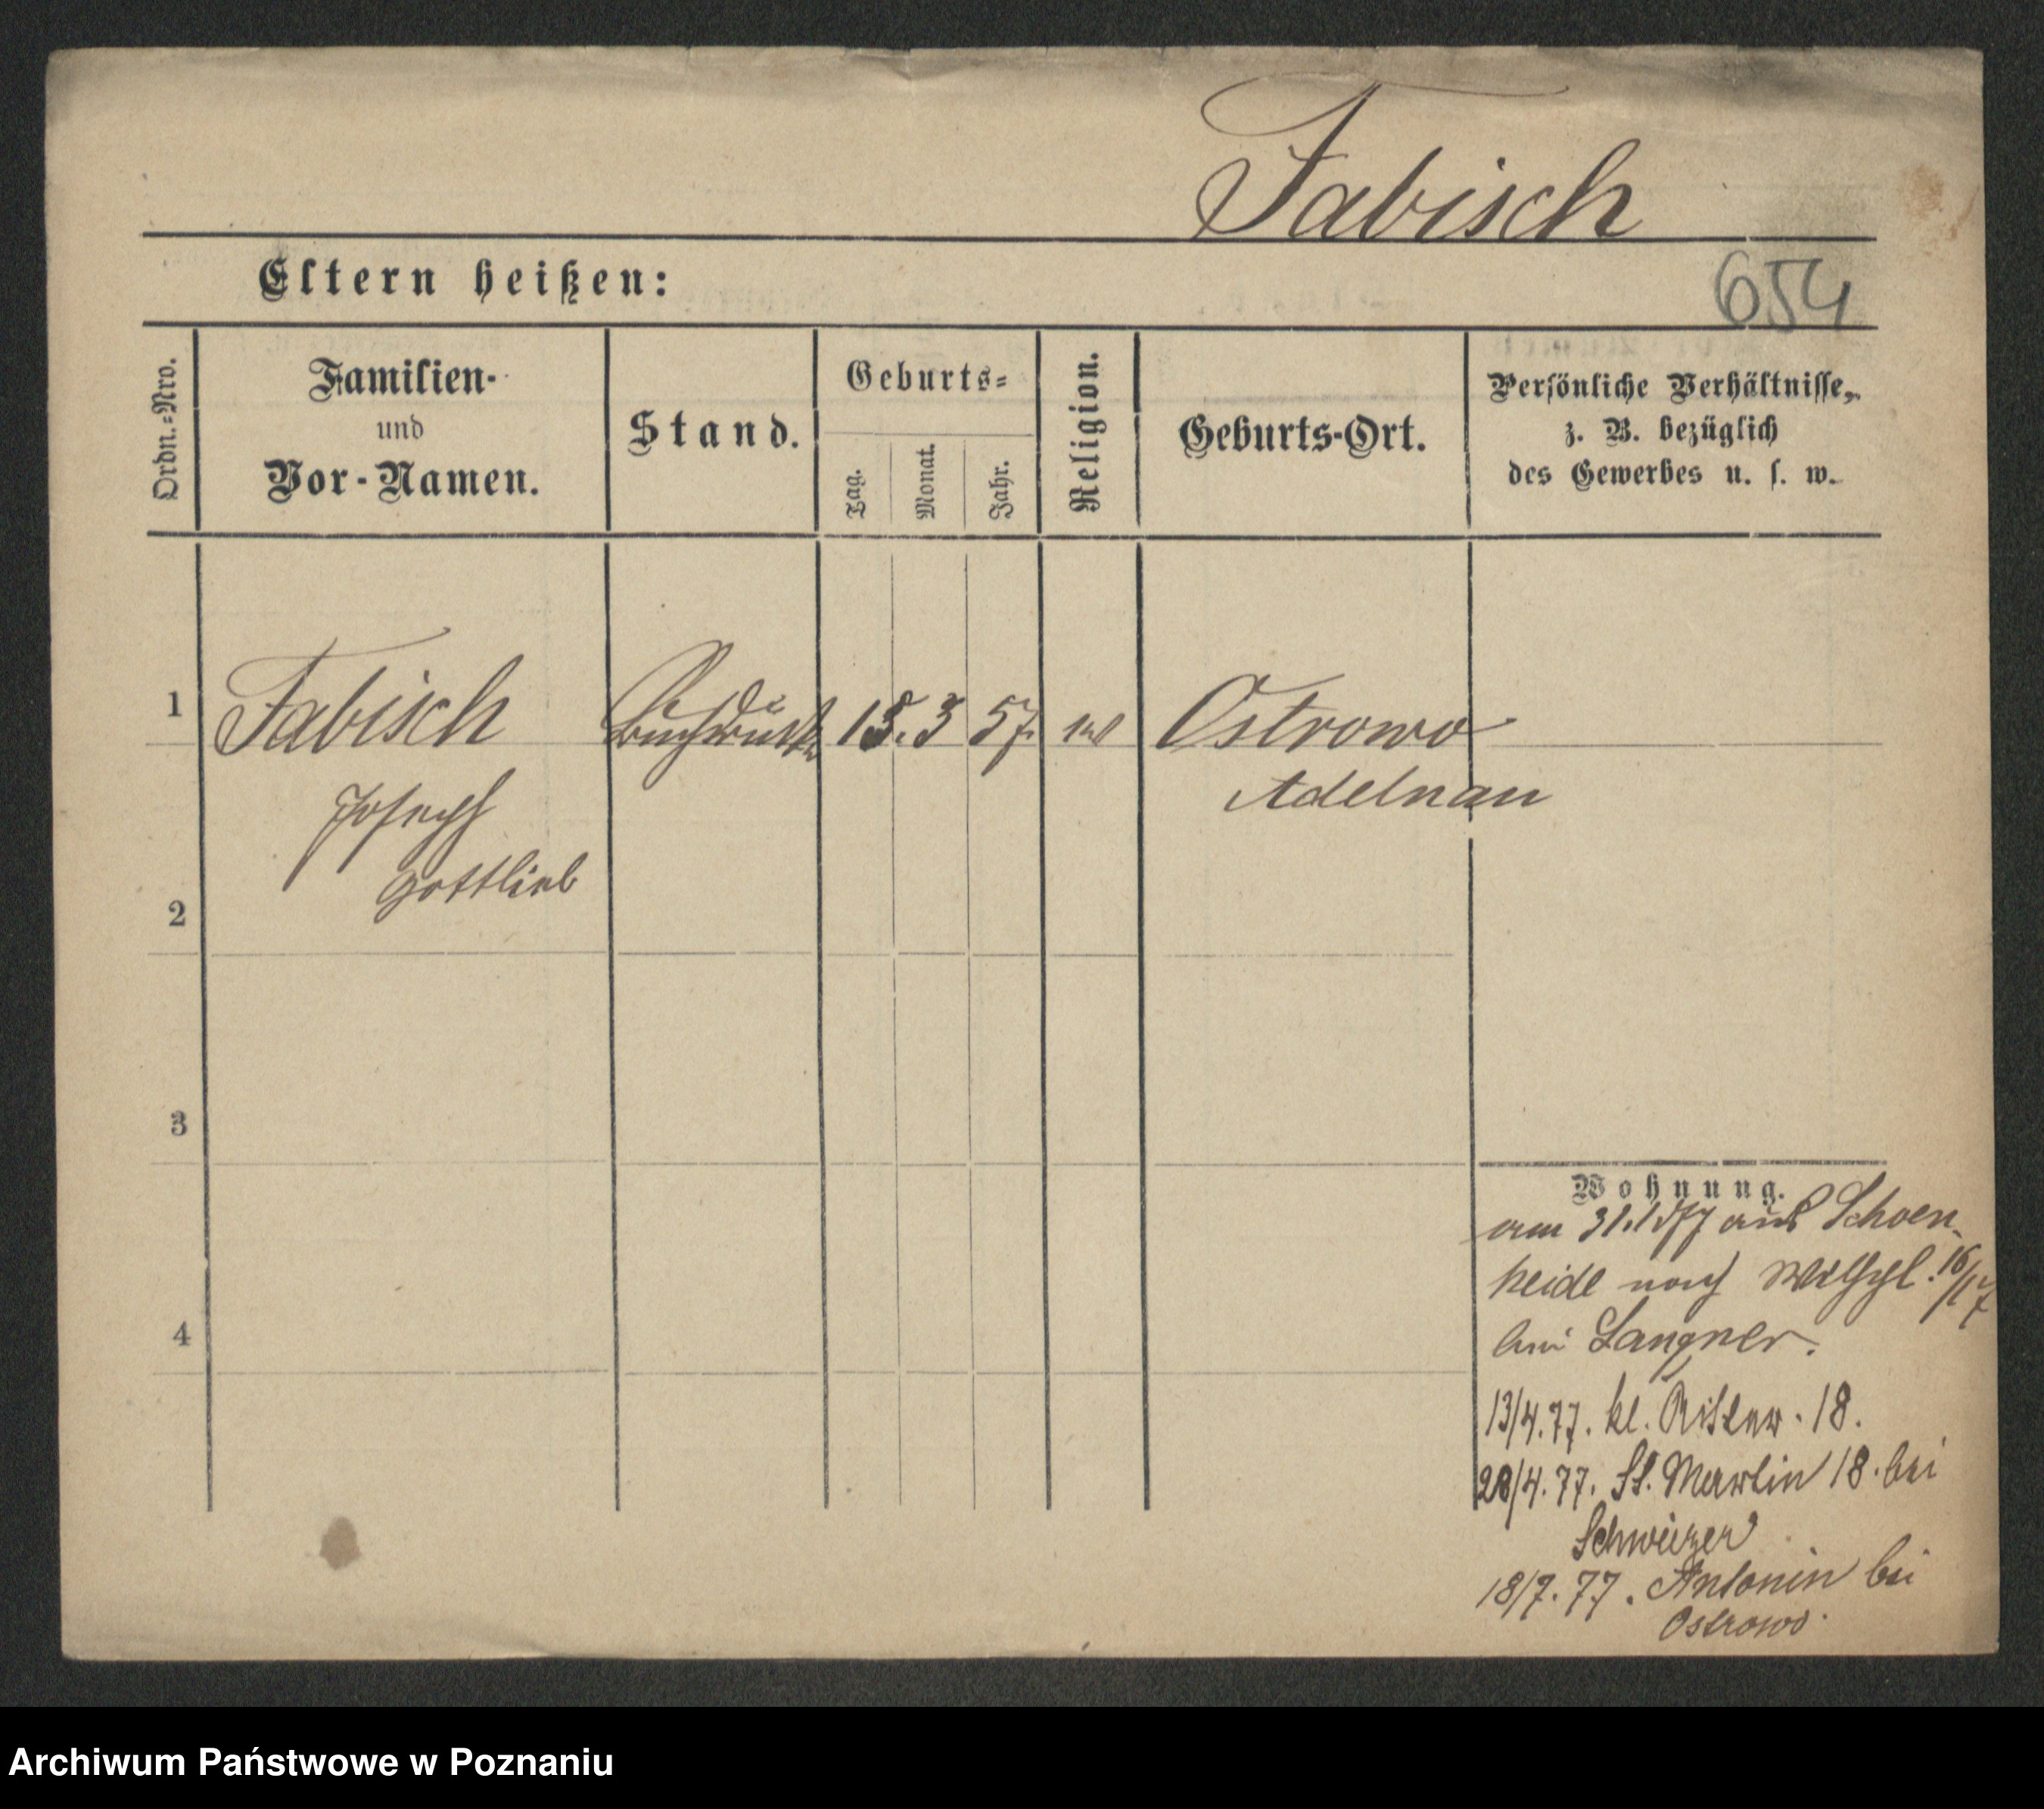 Fabisch
Eltern heißen:
654
Ordn.=Nro.
Familien-
und
Vor-Namen.
Stand.
Geburts=
Tag.
Monat.
Jahr.
Religion.
Geburts-Ort.
Persönliche Verhältnisse,
z. B. bezüglich
des Gewerbes u. s. w.
1
Fabisch
3
57.
Ostrowo
Joseph
Adelnau
Gottlieb
2
3
Wohnung.
am 31.1 aus Schoen-
heide nach
4
bei Langner.
13/4.77. kl. Ritter. 18.
28/4.77. St. Martin 18. bei
Schweizer
18/7.77. Antonin bei
Ostrowo.
Archiwum Państwowe w Poznaniu